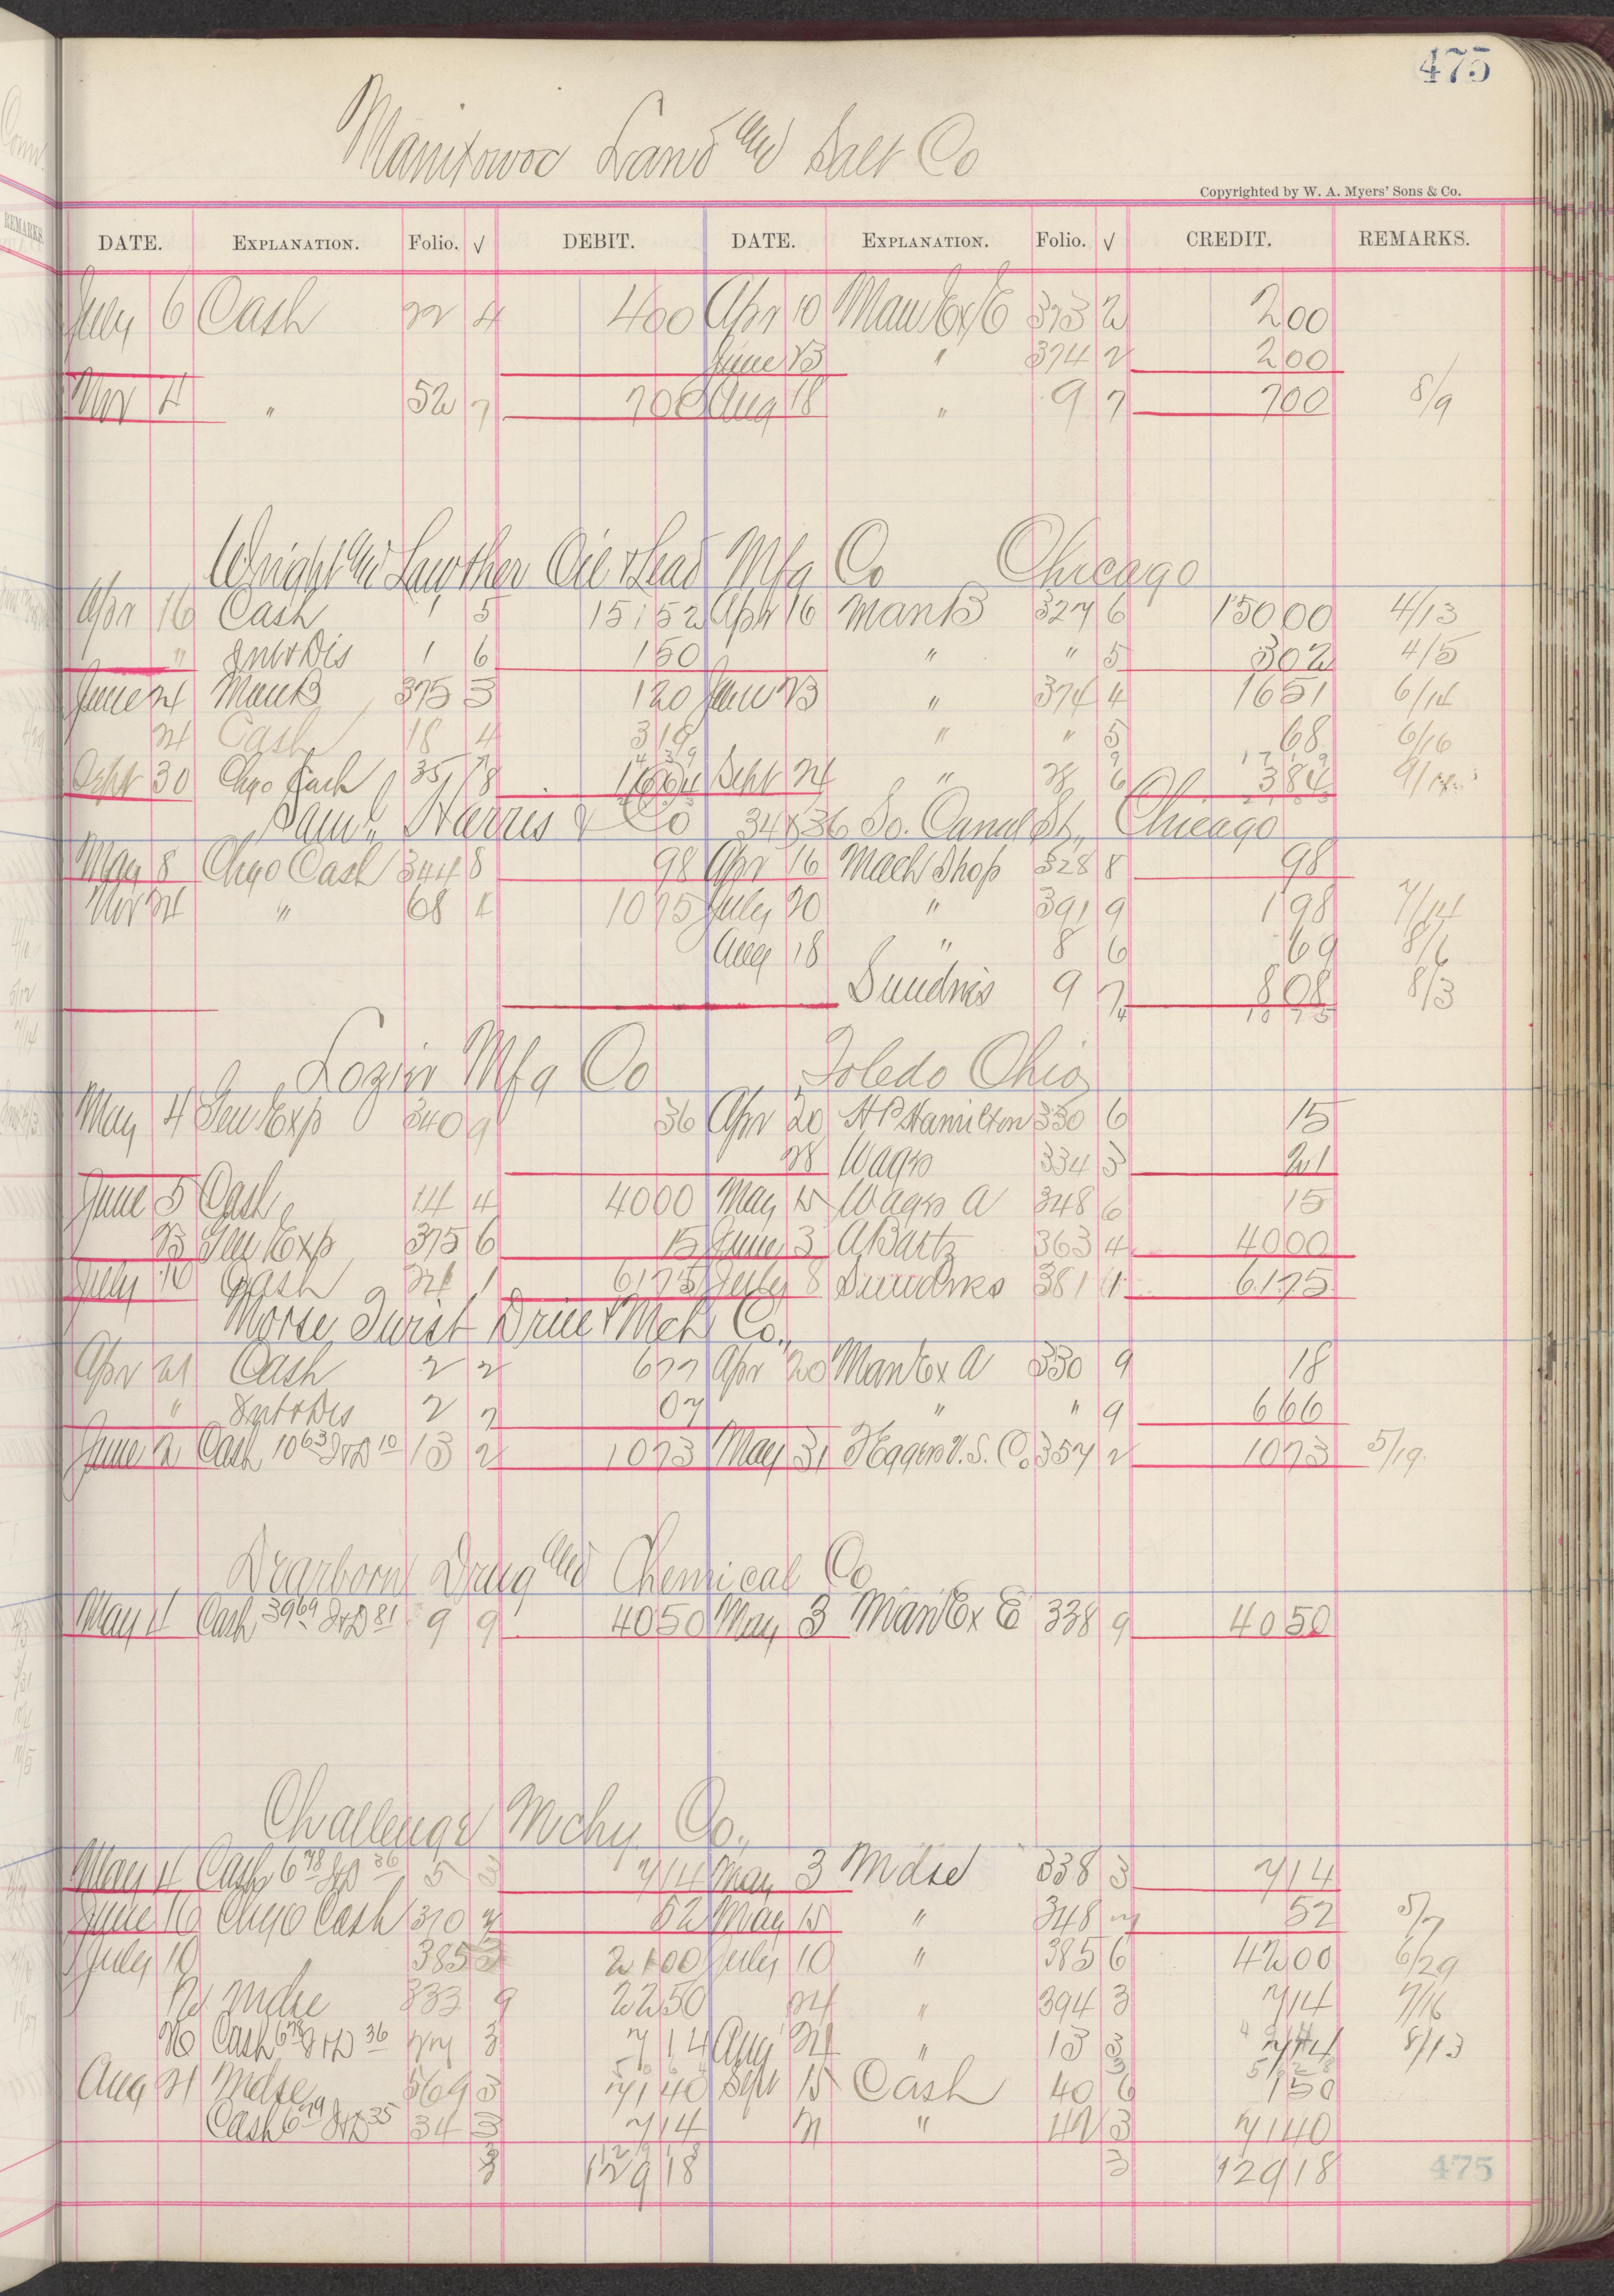 475
Manitowoc Land and Salt Co
Copyrighted by W. A. Myers' Sons & Co.
DATE. EXPLANATION. Folio. √ DEBIT. DATE. EXPLANATION. Folio. √ CREDIT. REMARKS.
July 6 Cash 22 4 400 Apr 10 Man Ex E 373 2 200
June 23 " 374 2 200
Nov 4 " 52 7 700 Aug 18 " 9 7 700 8/9
Wright and Lawther Oil & Lead Mfg Co Chicago
Apr 16 Cash 1 5 15152 Apr 16 Man B 327 6 15000 4/13
" Int & Dis 1 6 150 " " 5 302 4/5
June 24 Man B 375 3 120 June 23 " 374 4 1651 6/14
24 Cash 18 4 319 " " 5 68 6/16
Sept 30 Chgo Cash 35 8 Sept 24 " 28 6 384
Saml. Harris & Co 34 & 36 So. Canal St., Chicago
May 8 Chgo Cash 344 8 98 Apr 16 Mach Shop 328 8 98
Nov 24 " 68 1075 July 20 " 391 9 198 7/14
Aug 18 " 8 6 69 8/6
Sundries 9 7 808 8/3
Lozier Mfg Co Toledo Ohio
May 4 Gen Exp 340 9 36 Apr 20 H P Hamilton 330 6 15
28 Wages 334 3 21
June 5 Cash 14 4 4000 May 15 Wages A 348 6 15
23 Gen Exp 375 6 15 June 3 A Bartz 363 4 4000
July 10 Cash 24 1 6175 July 8 Sundries 381 1 6175
Morse Twist Drill & Mch Co.,
Apr 21 Cash 2 2 677 Apr 20 Man Ex A 330 9 18
" Int & Dis 2 2 07 " " 9 666
June 2 Cash 10 63 I & D 10 13 2 1073 May 31 357 2 1073 5/19
Dearborn Drug and Chemical Co
May 4 Cash 39 69 I & D 81 9 9 4050 May 3 Man Ex E 338 9 4050
Challenge Mchy Co.,
May 4 Cash 6 78 I & D 36 5 3 714 May 3 Mdse 338 3 714
June 16 Chgo Cash 370 7 52 May 15 " 348 7 52 5/7
July 10 385 3 2100 July 10 " 385 6 4200 6/29
Mdse 333 9 2250 24 " 394 3 714 7/16
26 Cash 6 78 I & D 36 27 3 714 Aug 24 " 13 3 714 8/13
Aug 21 Mdse 569 3 7140 Sept 15 Cash 40 6 150
Cash 6 79 I & D 35 34 3 714 21 " 42 3 7140
3 12918 3 12918
475